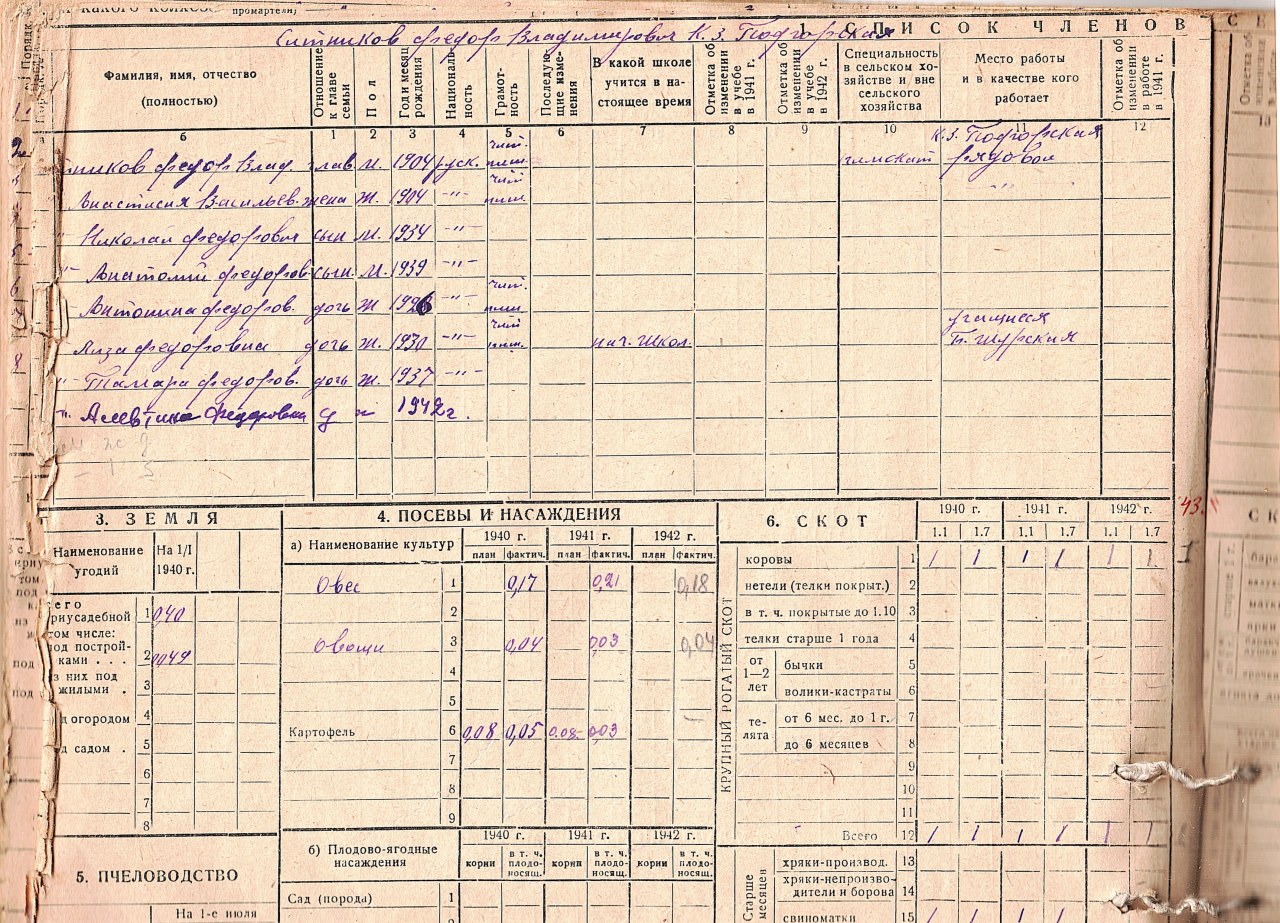 какого колхоз
промартели)
1. СПИСОК ЧЛЕНОВ
Ситников Федор Владимирович К. З. Подгорская
Фамилия, имя, отчество (полностью)
Отношение к главе семьи
Пол
Год и месяц рождения
Националь- ность
Грамот- ность
Последую- щие изме- нения
В какой школе учится в на- стоящее время
Отметка об изменении в учебе в 1941 г.
Отметка об изменении в учебе в 1942 г.
Специальность в сельском хо- зяйстве и вне сельского хозяйства
Место работы и в качестве кого работает
Отметка об изменении в работе в 1941 г.
б 1 2 3 4 5 6 7 8 9 10 11 12
тников Федор Влад. глав. м. 1904 руск. чит. пиш. К. З. Подгорская рядовой
Анастасия Васильев. жена ж. 1904 -"- чит пиш. -"-
Николай Федорович сын м. 1934 -"-
-"- Анатолий Федоров. сын. м. 1939 -"-
Антонина Федоров. дочь ж 1926 -"- чит. пиш.
Лиза Федоровна дочь ж. 1930 -"- чит пиш. нач. школ. учащиеся
-"- Тамара Федоров. дочь ж. 1937 -"-
Алевтина Федоровна д ж 1942 г.
3. ЗЕМЛЯ
Наименование угодий
На 1/I 1940 г.
его
риусадебной 1 0,40
том числе:
од построй-
ками . . . 2 0,049
з них под
жилыми . 3
д огородом 4
д садом . 5
6
7
8
5. ПЧЕЛОВОДСТВО
На 1-е июля
4. ПОСЕВЫ И НАСАЖДЕНИЯ
а) Наименование культур
1940 г. 1941 г. 1942 г.
план фактич. план фактич. план фактич.
Овес 1 0,17 0,21 0,18
2
Овощи 3 0,04 0,03 0,04
4
5
Картофель 6 0,08 0,05 0,08 0,03 —
7
8
9
б) Плодово-ягодные насаждения
1940 г. 1941 г. 1942 г.
корни в т. ч. плодо- носящ. корни в т. ч. плодо- носящ. корни в т. ч. плодо- носящ.
Сад (порода) 1
6. СКОТ
1940 г. 1941 г. 1942 г.
1.1 1.7 1.1 1.7 1.1 1.7
43.
КРУПНЫЙ РОГАТЫЙ СКОТ
коровы 1 1 1 1 1 1 1
нетели (телки покрыт.) 2
в т. ч. покрытые до 1.10 3
телки старше 1 года 4
от 1—2 лет
бычки 5
волики-кастраты 6
те- лята
от 6 мес. до 1 г. 7
до 6 месяцев 8
9
10
11
Всего 12 1 1 1 1 1 1
Старше месяцев
хряки-производ. 13
хряки-непроизво- дители и борова 14
свиноматки 15